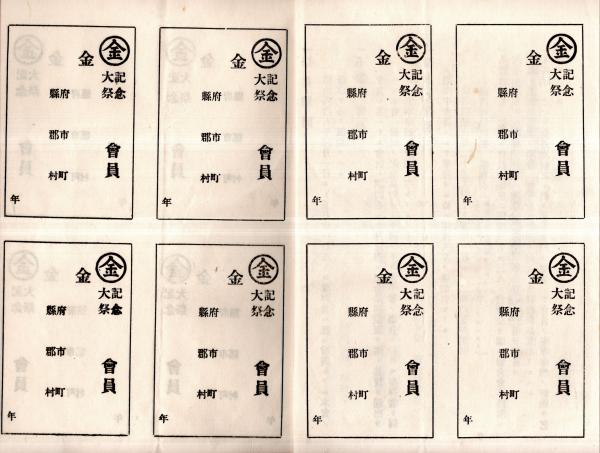 金
記念
大祭
會員
金
府縣
市郡
町村
年
金
記念
大祭
會員
金
府縣
市郡
町村
年
金
記念
大祭
會員
金
府縣
市郡
町村
年
金
記念
大祭
會員
金
府縣
市郡
町村
年
金
記念
大祭
會員
金
府縣
市郡
町村
年
金
記念
大祭
會員
金
府縣
市郡
町村
年
金
記念
大祭
會員
金
府縣
市郡
町村
年
金
記念
大祭
會員
金
府縣
市郡
町村
年